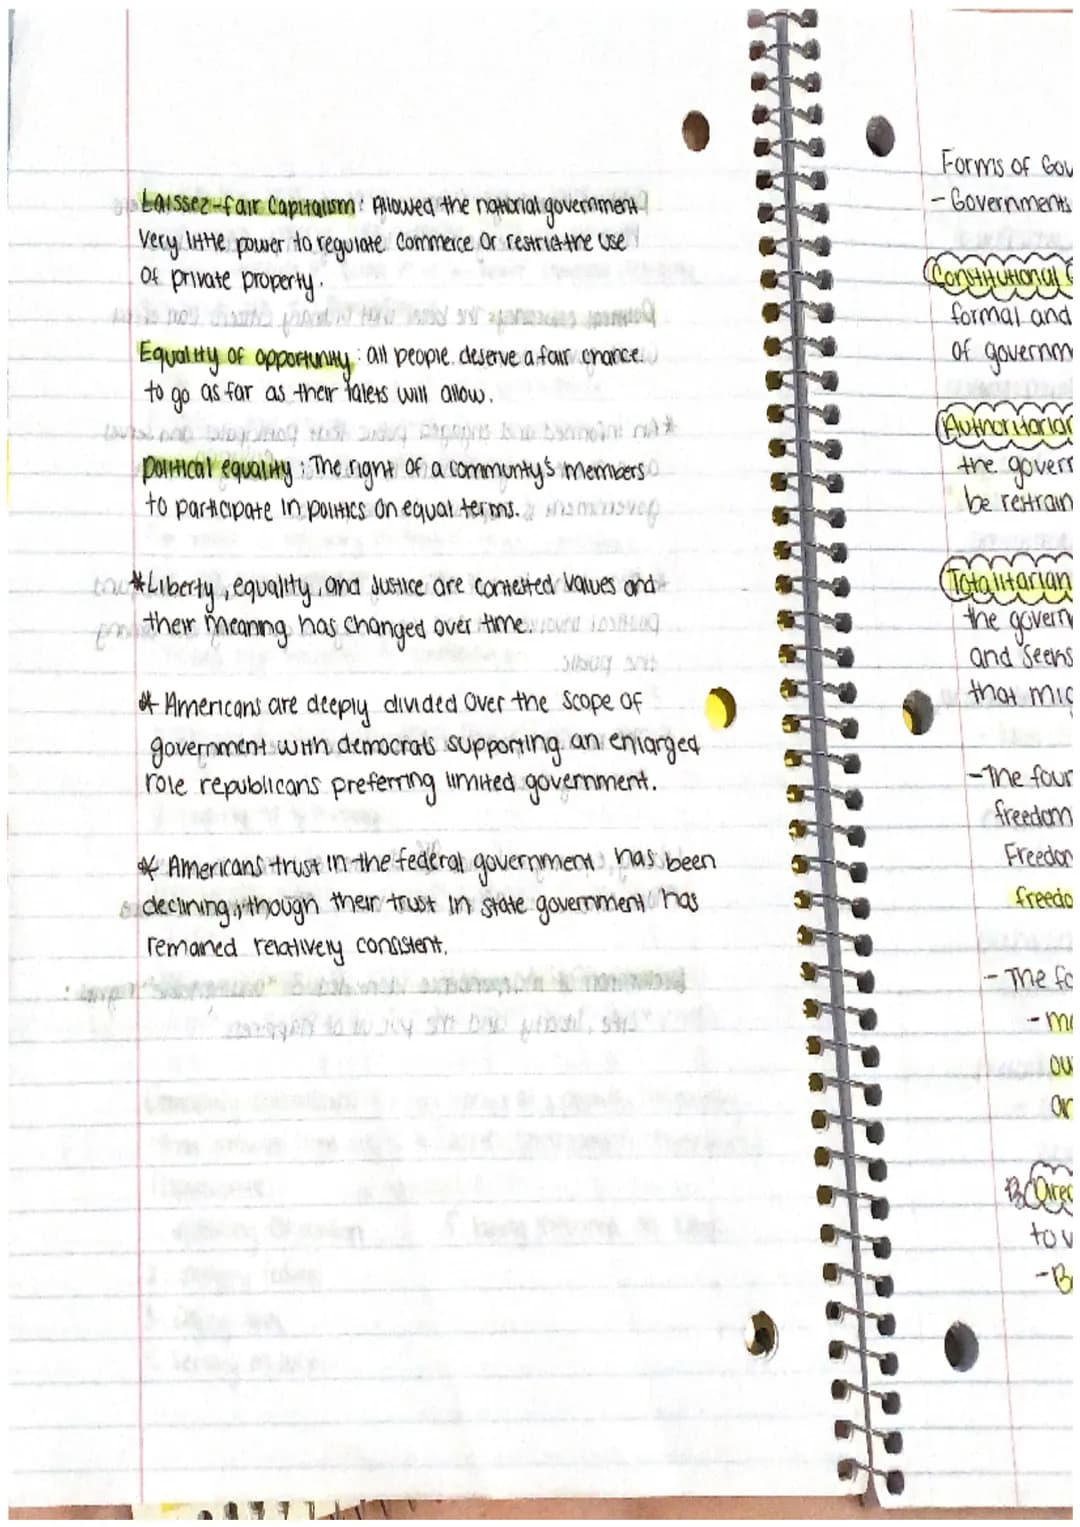 Laissez-fair Capitalism: Allowed the national government
very little power to regulate commerce or restrict the use
of private property.
Equality of opportunity: all people deserve a fair chance
to go as far as their talets will allow.
political equality: The right of a community's members
to participate in politics on equal terms.
*Liberty, equality, and Justice are contested values and
their meaning has changed over time.
* Americans are deeply divided over the scope of
government with democrats supporting an enlarged
role republicans preferring limited government.
* Americans trust in the federal government has been
declining, though their trust in state government has
remained relatively consistent.
Forms of Gov
- Governments
Constitutional G
formal and
of governm
Authoritarian
the govern
be restrain
Totalitarian
the govern
and seens
that mig
- The four
freedom
Freedom
freedo
- The fo
- mo
ou
an
Direc
to v
- Be